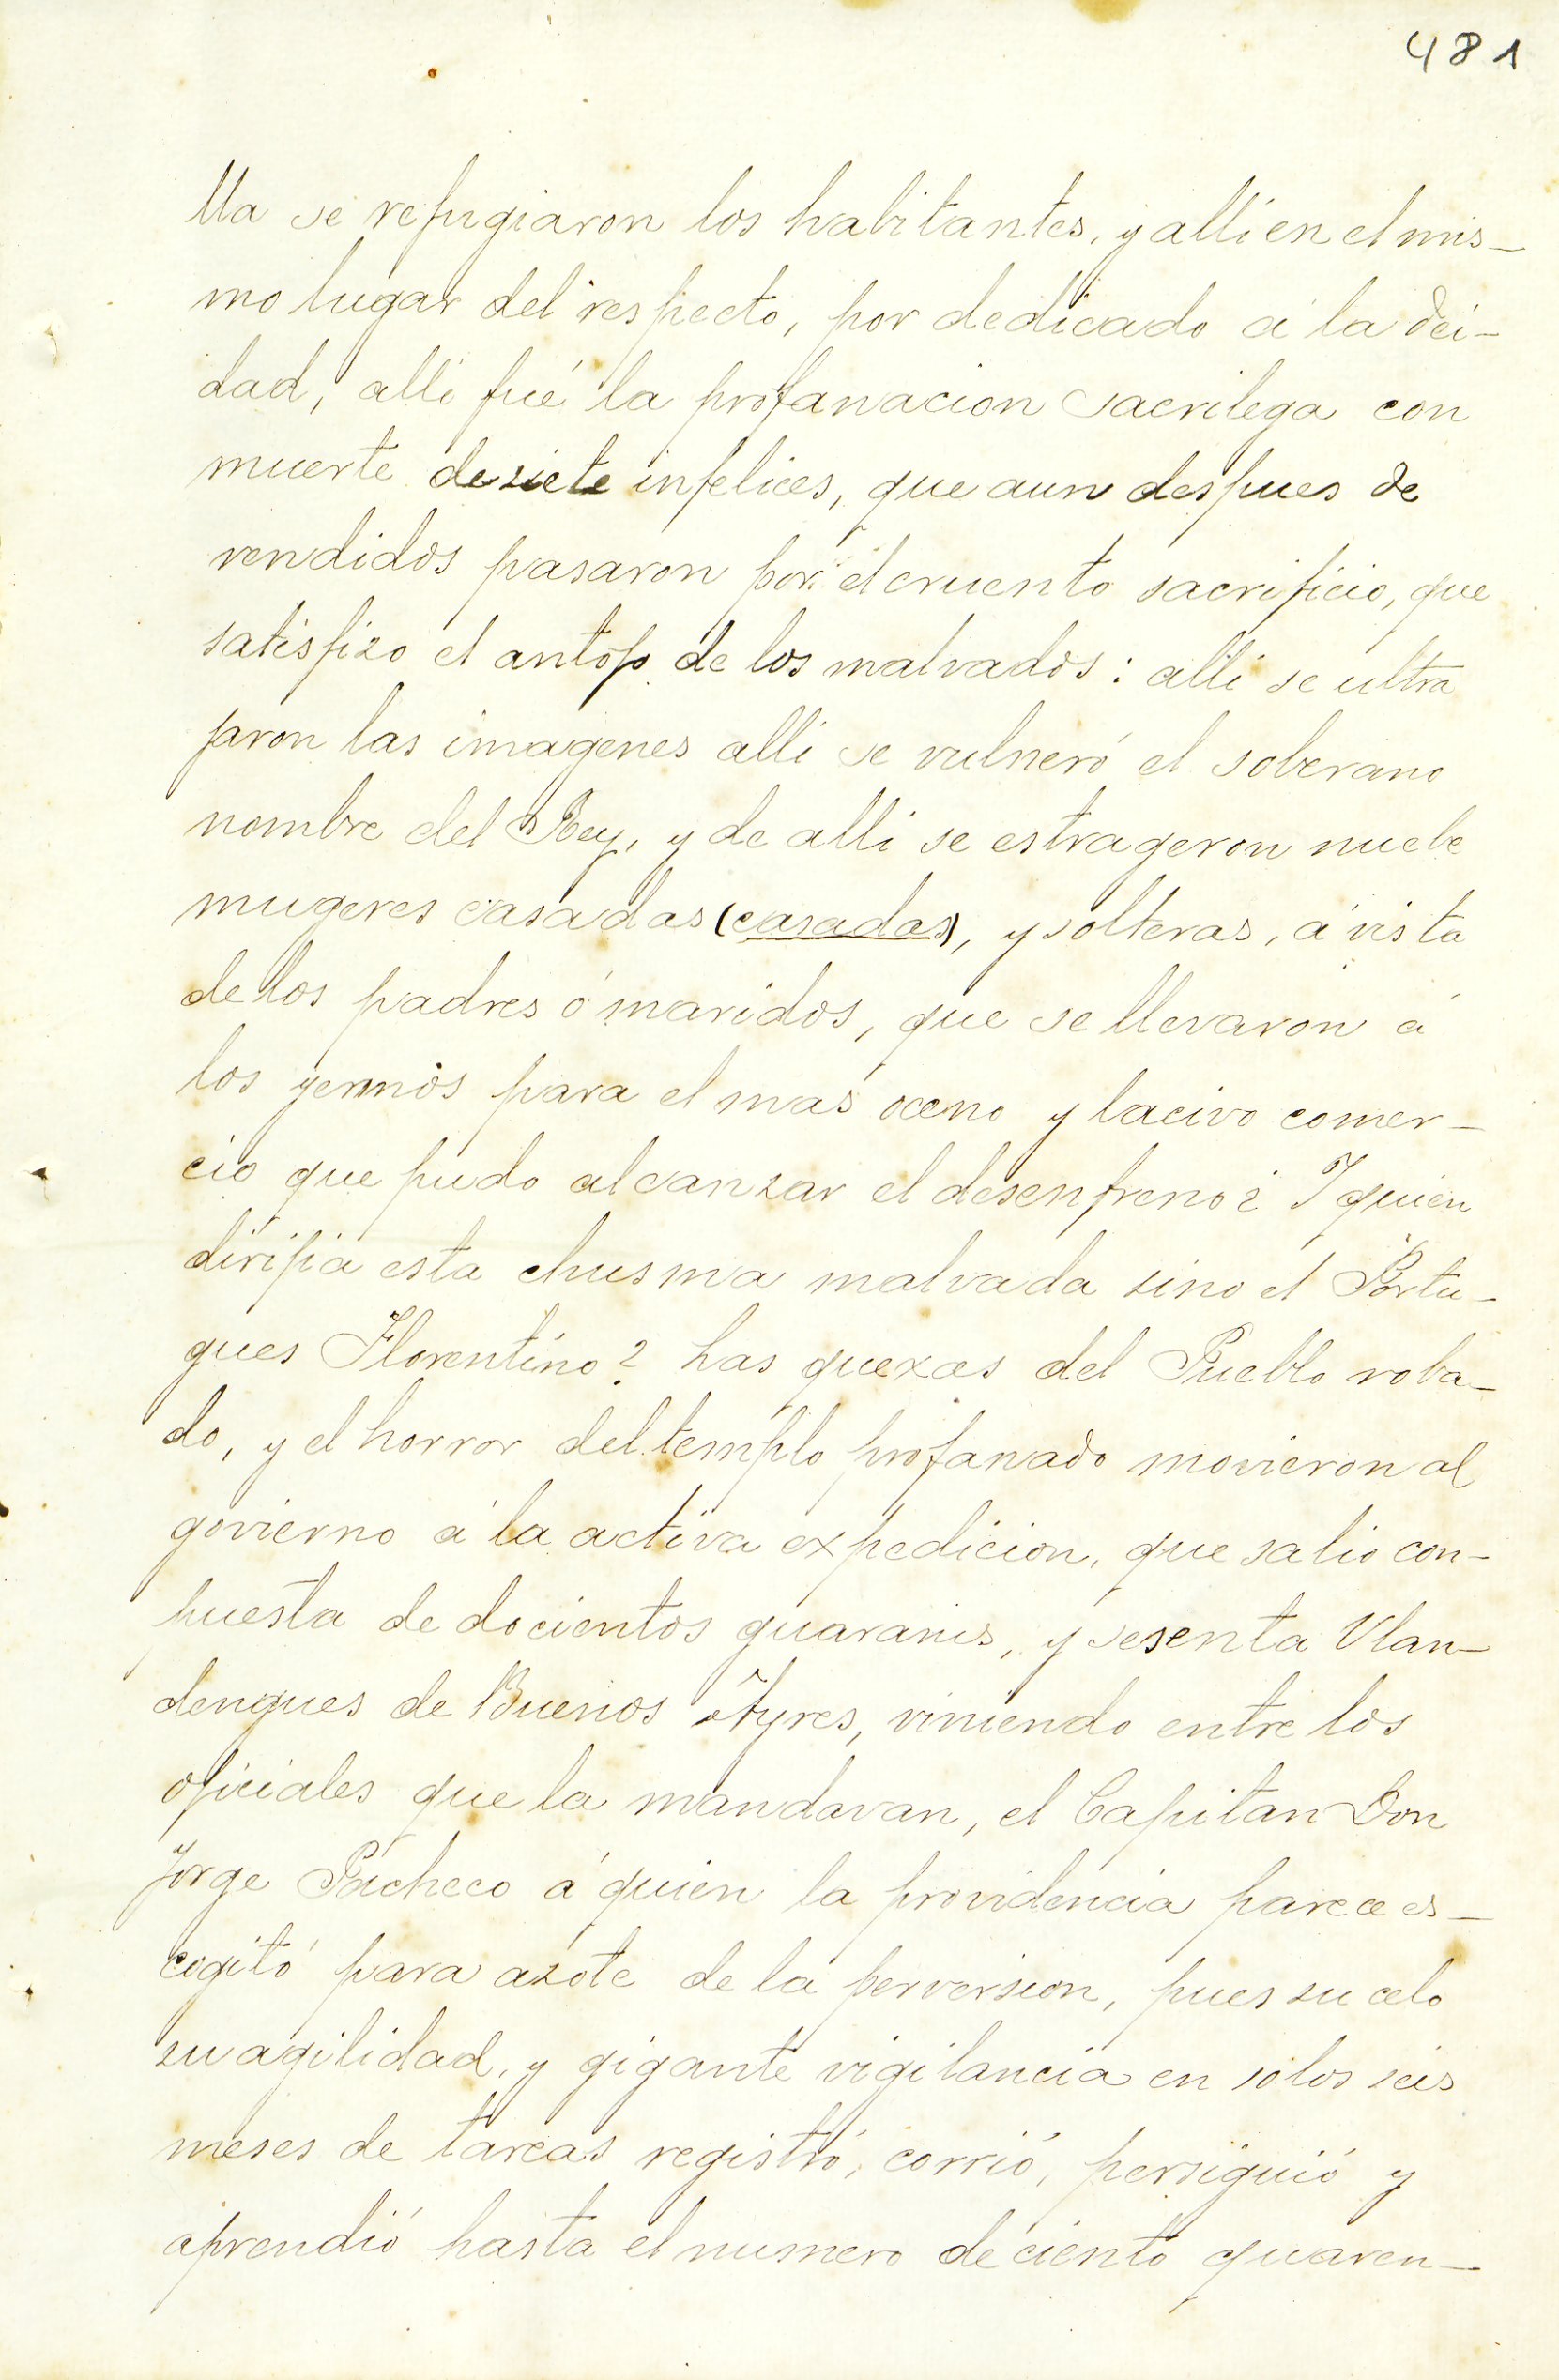 481
lla se refugiaron los habitantes, y alli en el mis-
mo lugar del respecto, por dedicado á la dei-
dad, alli fué la profanacion sacrilega con
muerte de siete infelices, que aun despues de
rendidos pasaron por el cruento sacrificio, que
satisfizo el antojo de los malvados: alli se ultra
jaron las imagenes alli se vulneró el soberano
nombre del Rey, y de alli se estrageron nuebe
mugeres casadas (casadas), y solteras, á vista
de los padres ó maridos, que se llevaron á
los yermos para el mas oceno y lacivo comer-
cio que pudo alcanzar el desenfreno ¿ Y quien
dirijia esta chusma malvada sino el Portu-
gues Florentino? Las quexas del Pueblo roba-
do, y el horror del templo profanado movieron al
govierno á la activa expedicion, que salio con-
puesta de docientos guaranis, y sesenta Vlan-
dengues de Buenos Ayres, viniendo entre los
oficiales que la mandavan, el Capitan Don
Jorge Pacheco á quien la providencia parece es-
cogitó para azote de la perversion, pues su celo
su agilidad, y gigante vigilancia en solos seis
meses de tareas registró, corrió, persiguió y
aprendió hasta el numero de ciento quaren-